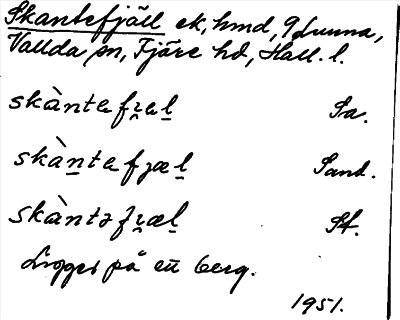 Skantefjäll ek, hmd, 9 Lunna,
Vallda sn, Fjäre hd, Hall. l.
skàntafi̯æl̲ Sa.
skàn̲tafjæl̲ Sand.
skàntəfi̯æl̲ Sf.
Ligger på ett berg.
1951.